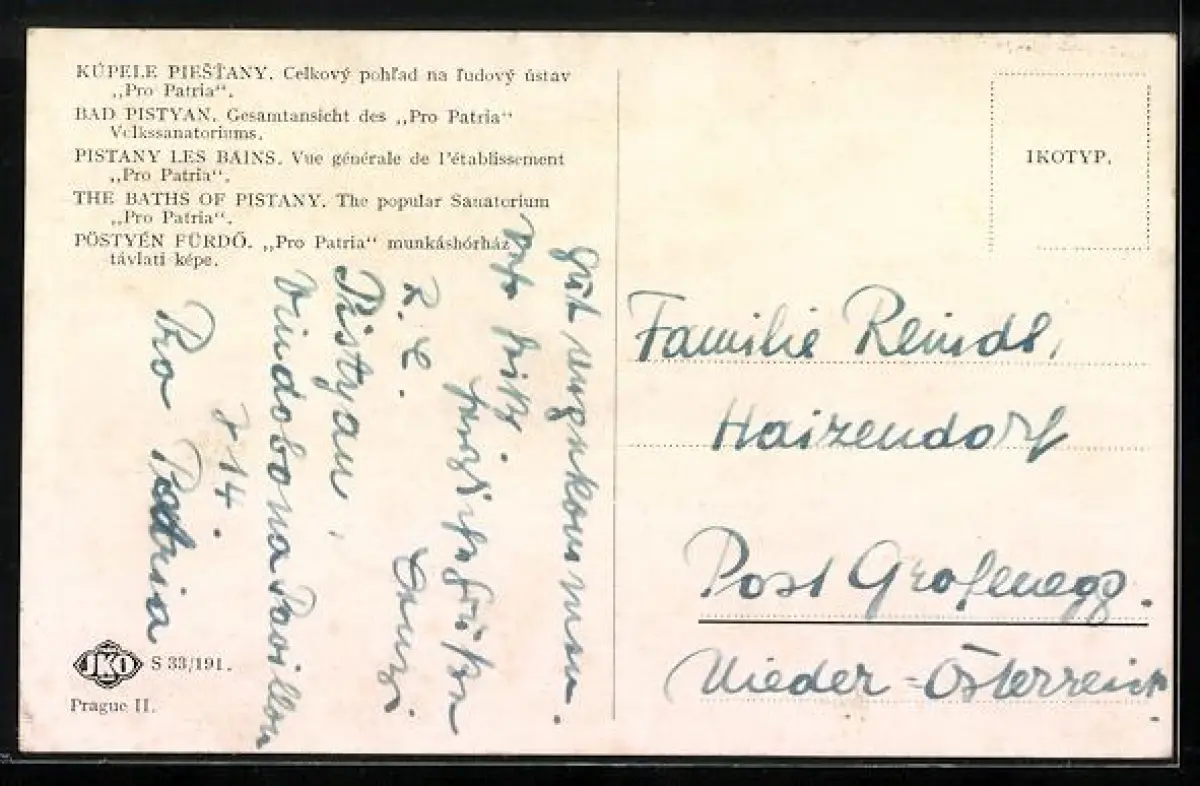 KÚPELE PIEŠŤANY. Celkový pohľad na ľudový ústav
„Pro Patria“.
BAD PISTYAN. Gesamtansicht des „Pro Patria“
Volkssanatoriums.
PISTANY LES BAINS. Vue générale de l'établissement
„Pro Patria“.
THE BATHS OF PISTANY. The popular Sanatorium
„Pro Patria“.
PÖSTYÉN FÜRDŐ. „Pro Patria“ munkáshórház
távlati képe.
Gut angekommen.
herzliche Grüße
Pistyan,
Vindobona Pavillon
Pro Patria
IKO S 33/191.
Prague II.
IKOTYP.
Familie Reindl,
Haizendorf
Post Grafenegg.
Nieder-Österreich